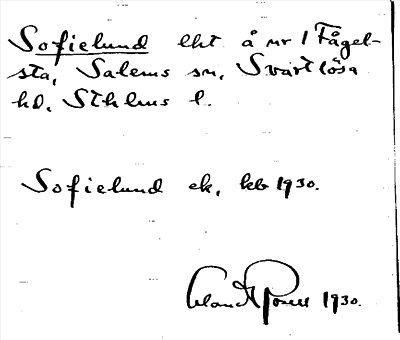 Sofielund lht å nr 1 Fågel-
sta, Salems sn, Svartlösa
hd, Sthlms l.
Sofielund ek, kb 1930.
1930.